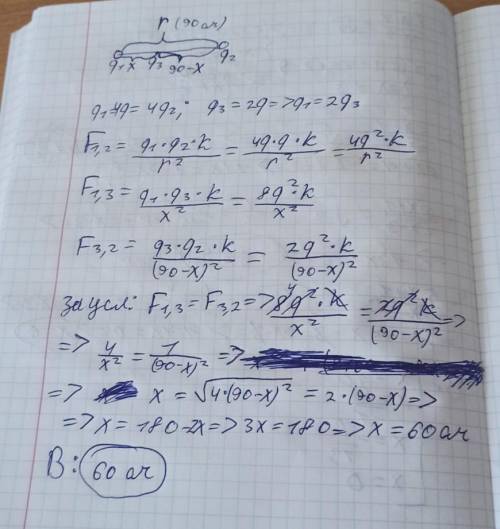 r (90 см)
q₁ x q₃ 90-x q₂
q₁ = 4q = 4q₂; q₃ = 2q => q₁ = 2q₃
F₁,₂ = q₁·q₂·k / r² = 4q·q·k / r² = 4q²·k / r²
F₁,₃ = q₁·q₃·k / x² = 8q²·k / x²
F₃,₂ = q₃·q₂·k / (90-x)² = 2q²·k / (90-x)²
за усл: F₁,₃ = F₃,₂ => 8q²·k / x² = 2q²k / (90-x)² =>
=> 4 / x² = 1 / (90-x)² =>
=> x = √4·(90-x)² = 2·(90-x) =>
=> x = 180-2x => 3x = 180 => x = 60 см
В: 60 см